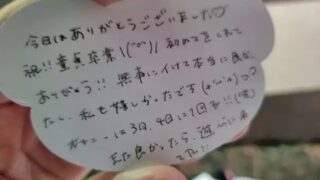 今日はありがとうございました♡
祝!!童貞卒業\(^o^)/ 初めてをくれて
ありがとう!! 無事にイけて本当に良かっ
たし、私も嬉しかったです(*^^*)つ
オナニーは3日、4日に1回ね!!
また良かったら、遊びに来
てね!!